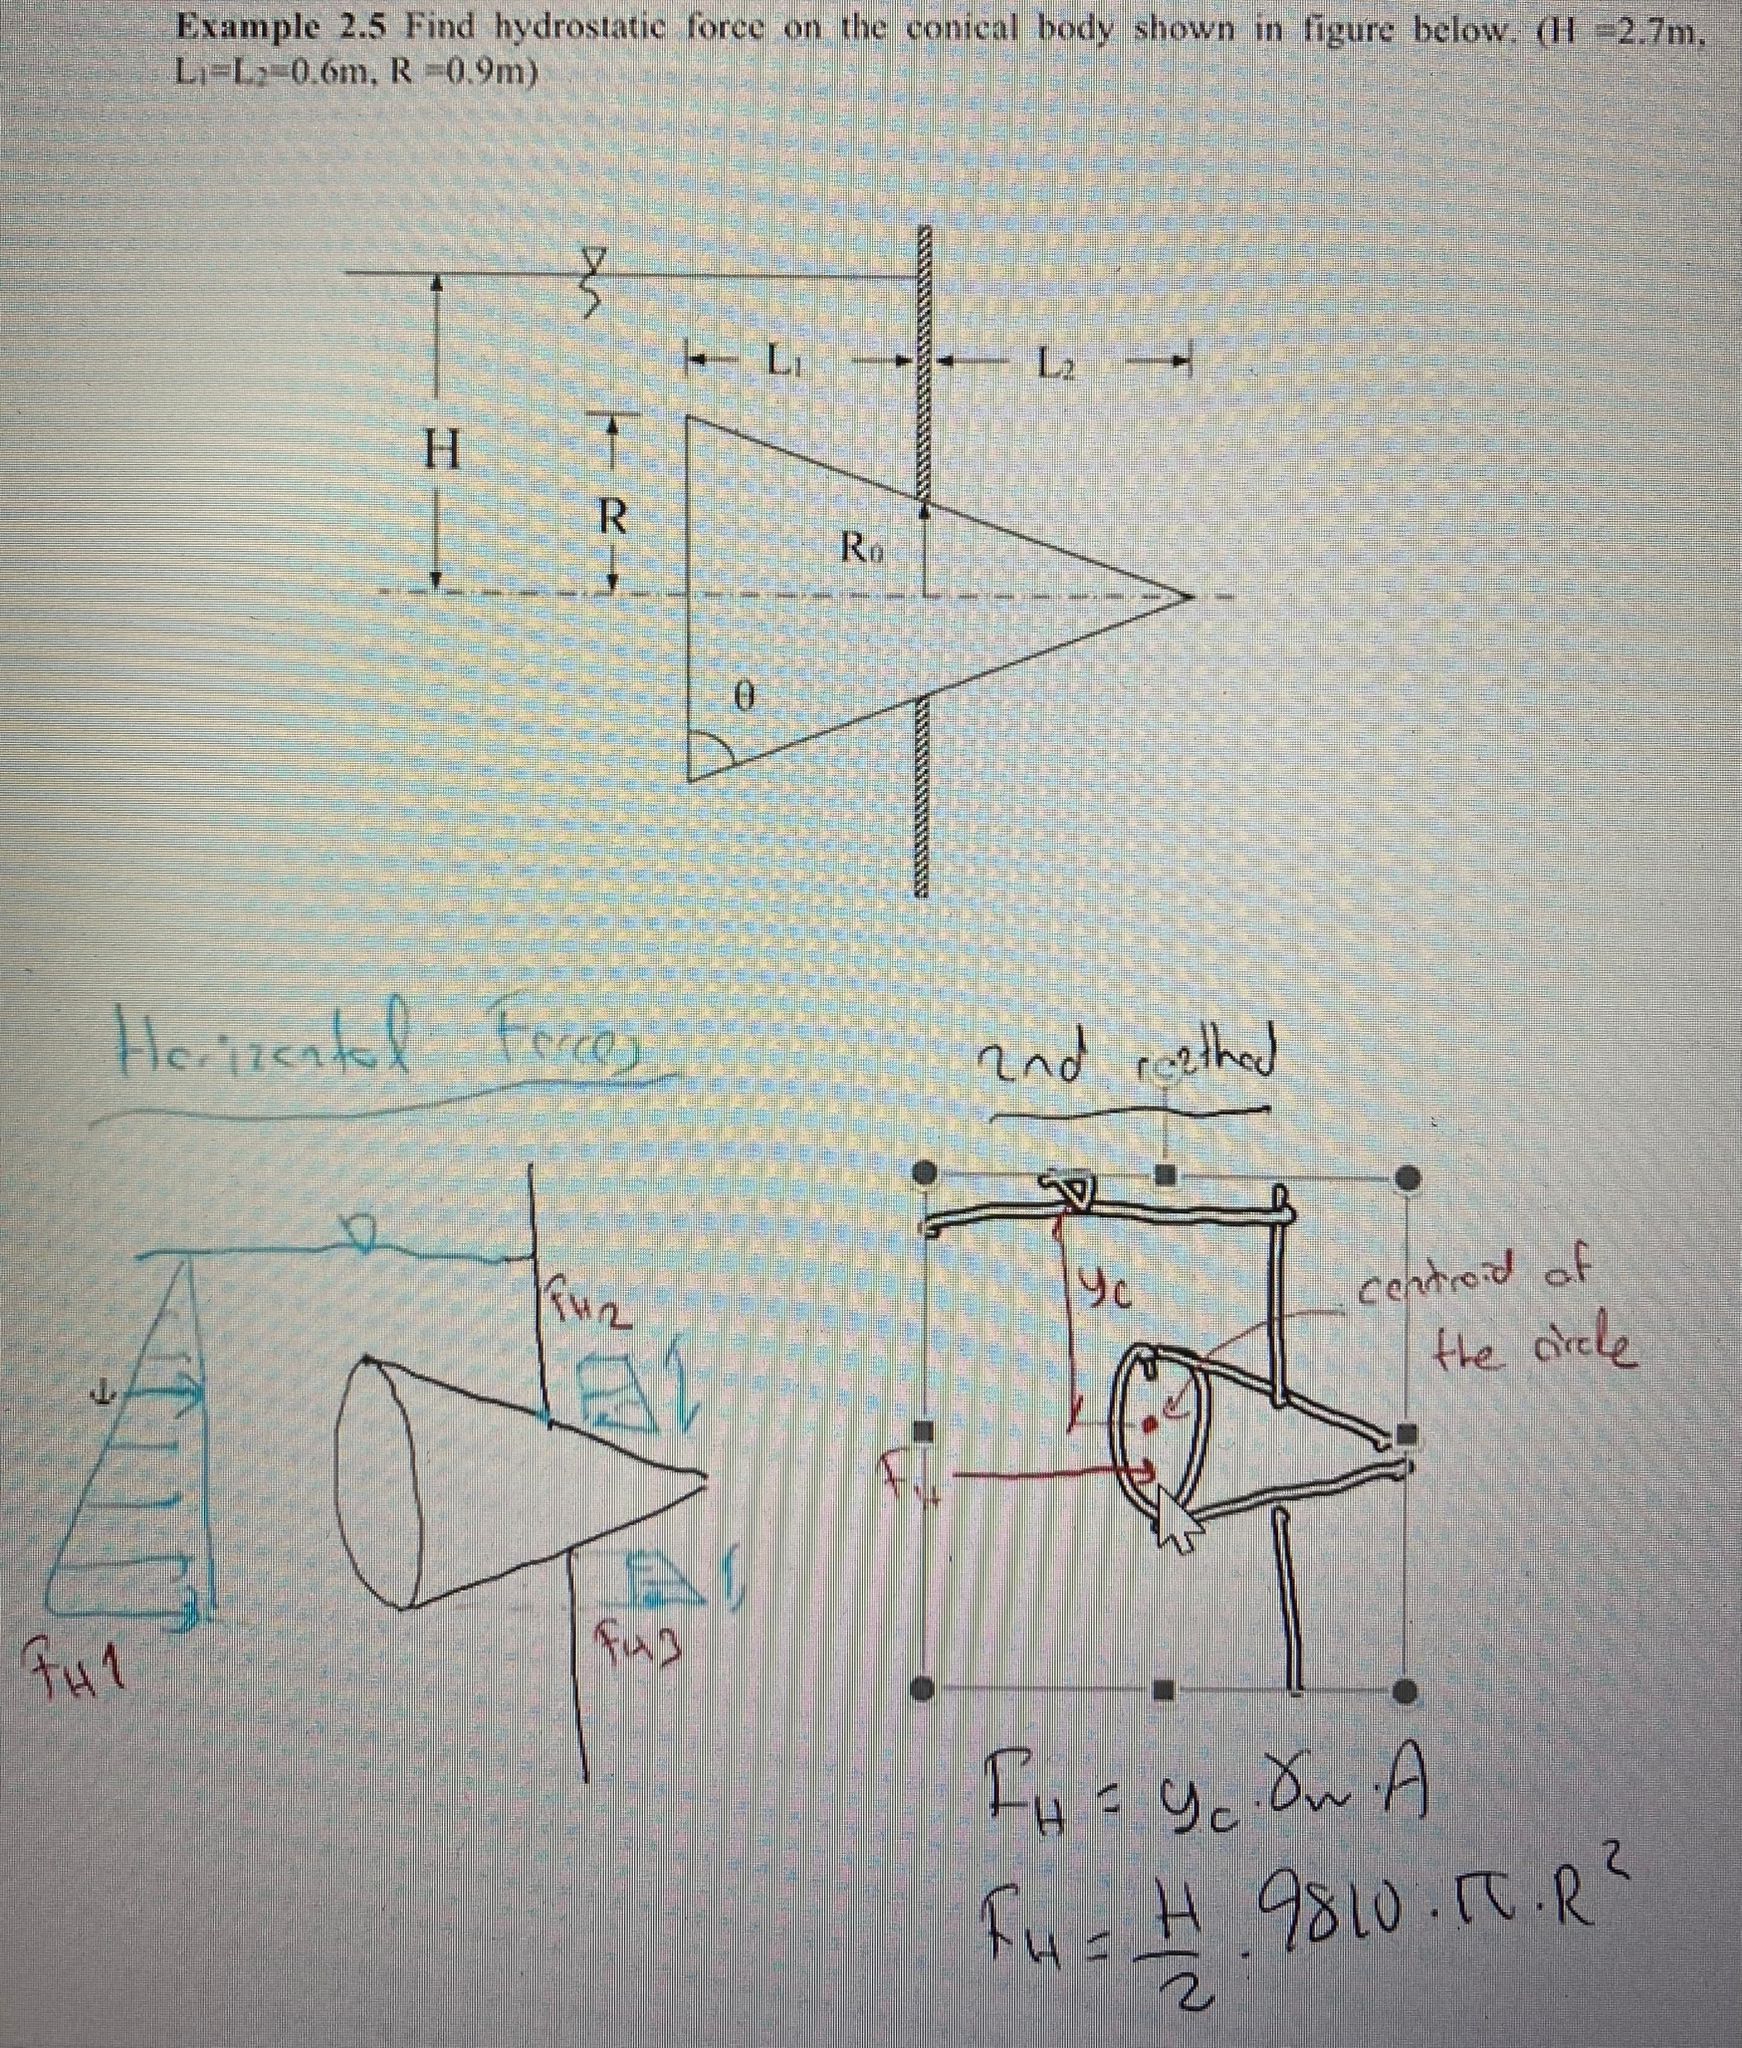 Example 2.5 Find hydrostatic force on the conical body shown in figure below. (H =2.7m,
L₁=L₂=0.6m, R =0.9m)
L₁
L₂
H
R
R₀
θ
Horizontal Forces
2nd method
FH2
yc
centroid of
the circle
FH
FH1
FH3
FH = yc · γw · A
FH = H/2 · 9810 · π · R²